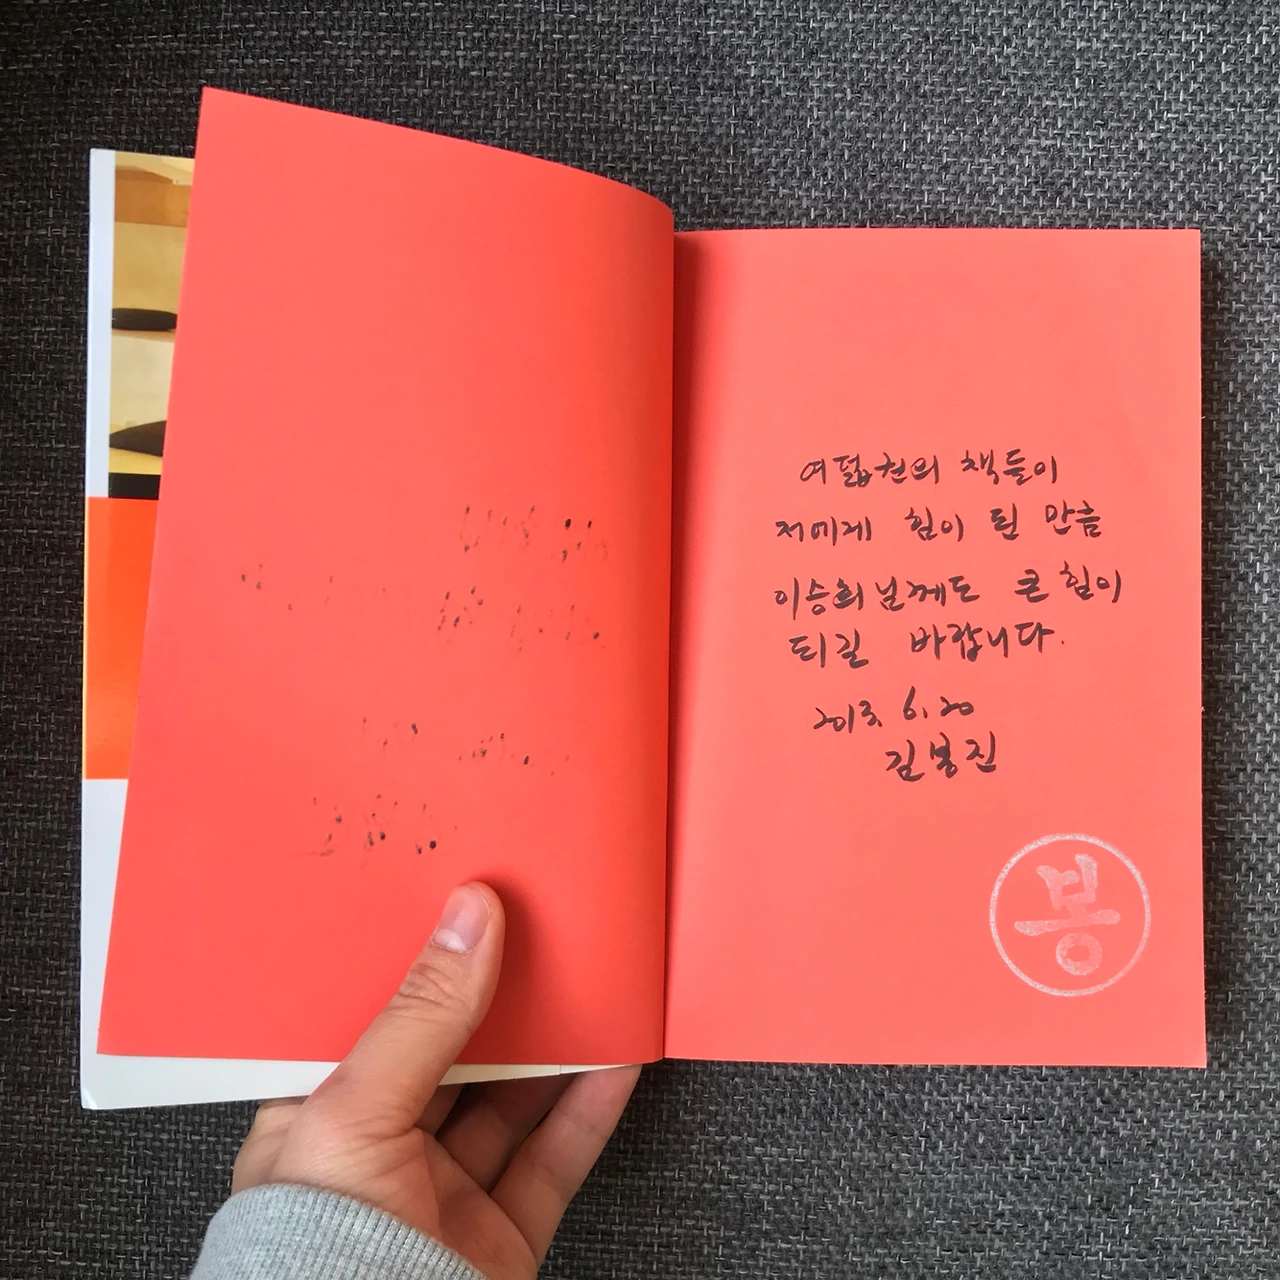 여덟권의 책들이
저에게 힘이 된 만큼
이승희님께도 큰 힘이
되길 바랍니다.
2013. 6. 20
김봉진
봉